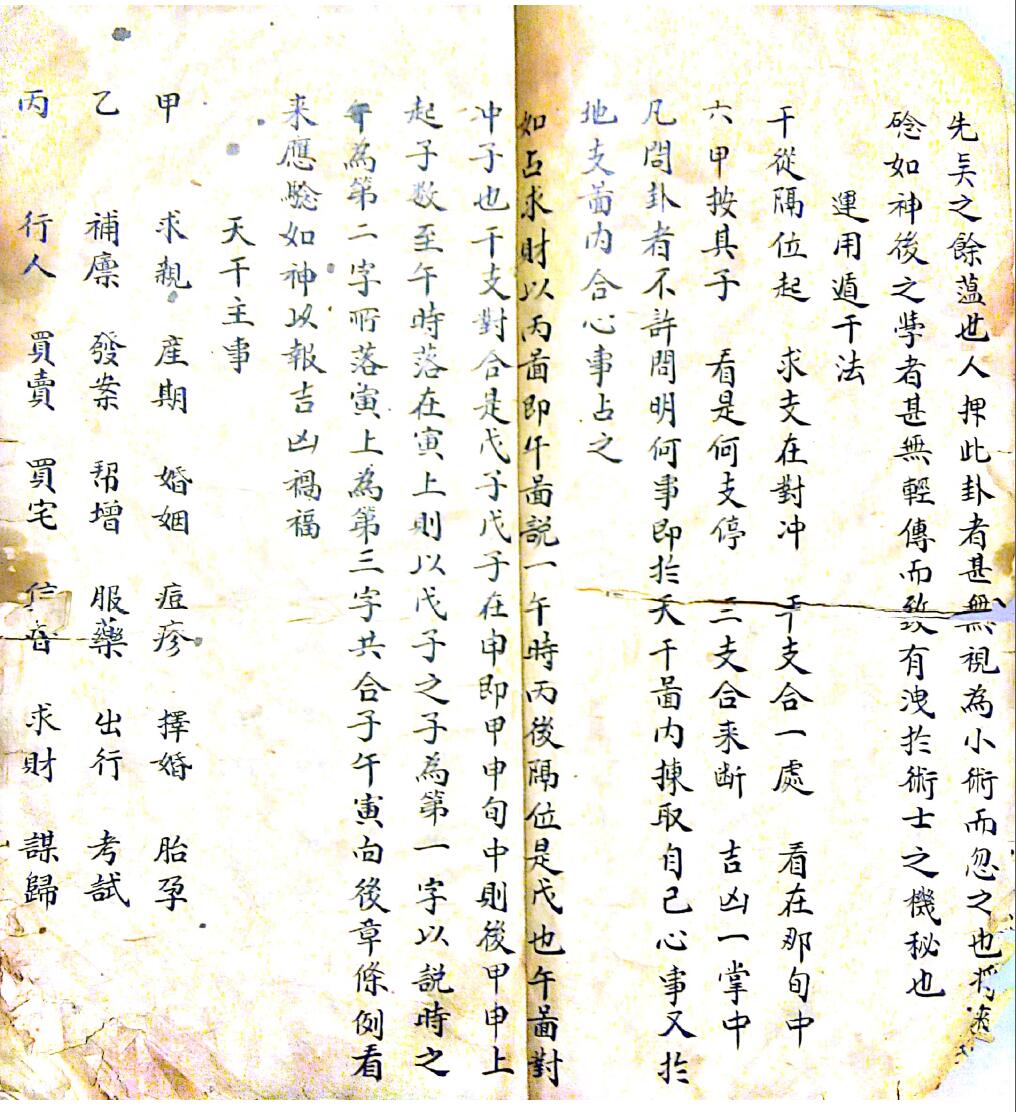 先矣之餘蕴也人押此卦者甚無視為小術而忽之也
騐如神後之學者甚無輕傳而致有洩扵術士之機秘也
運用遁干法
干從隔位起 求支在對冲 干支合一處 看在那旬中
六甲按具子 看是何支停 三支合来断 吉凶一掌中
凡問卦者不許問明何事即扵天干啚内揀取自己心事又扵
地支啚内合心事占之
如占求財以丙啚即午啚説一午時丙後隔位是戊也午啚對
冲子也干支對合是戊子戊子在申即甲申旬中則後甲申上
起子数至午時落在寅上則以戊子之子為第一字以説時之
午為第二字所落寅上為第三字共合子午寅向後章條例看
来應騐如神以報吉凶禍福
天干主事
甲 求親 産期 婚姻 痘疹 擇婚 胎孕
乙 補廪 發案 帮增 服藥 出行 考試
丙 行人 買賣 買宅 信音 求財 謀歸